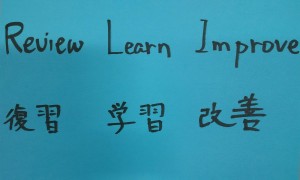 Review Learn Improve
復習 学習 改善